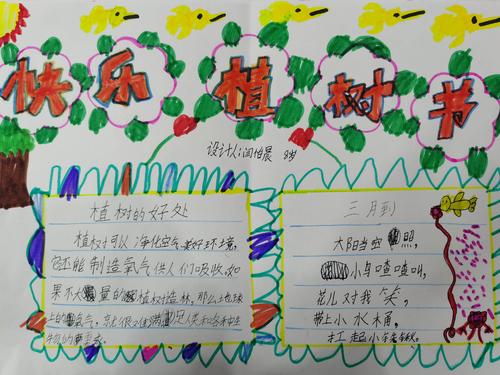 快乐植树节
设计人:闫怡晨 8岁
植树的好处
植树可以净化空气,美好环境,
它还能制造氧气供人们吸收。如
果不大量的植树造林,那么地球
上的氧气,就很难满足人类和各种生
物的需要。
三月到
太阳当空照,
小鸟喳喳叫,
花儿对我笑,
带上小水桶,
扛起小铁锹。